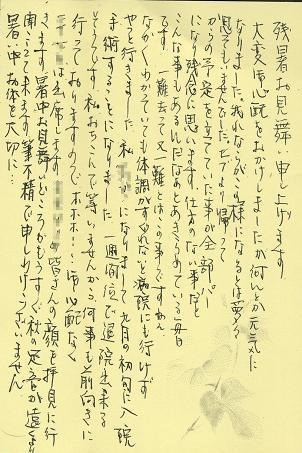 残暑お見舞い申し上げます
大変御心配をおかけしましたが何んとか元気に
なりました。我れながらこの様になるとは夢々
思っていませんでした。だてより帰って
からの予定を立てていた事が全部パー
になり残念に思います。仕方のない事だと
こんな事もあるんだなあとあきらめている毎日
です。一難去って又一難とはこの事ですわね
なかなくわかっていても体調がすぐれないと病院にも行けず
やって行きます。私 になりまして九月の初旬に入院
手術することになりました。一週間位で退院出来る
そうです。私おちこんで等いませんから何事も前向きに
行っておりますのでホホホ…御心配なく
は欠席します 皆さんの顔を拝見に行
きます。暑中お見舞どころかもうすぐ秋の足音が遠くより
聞こえて来ます。筆不精で申しわけございません
暑い中お体を大切に…